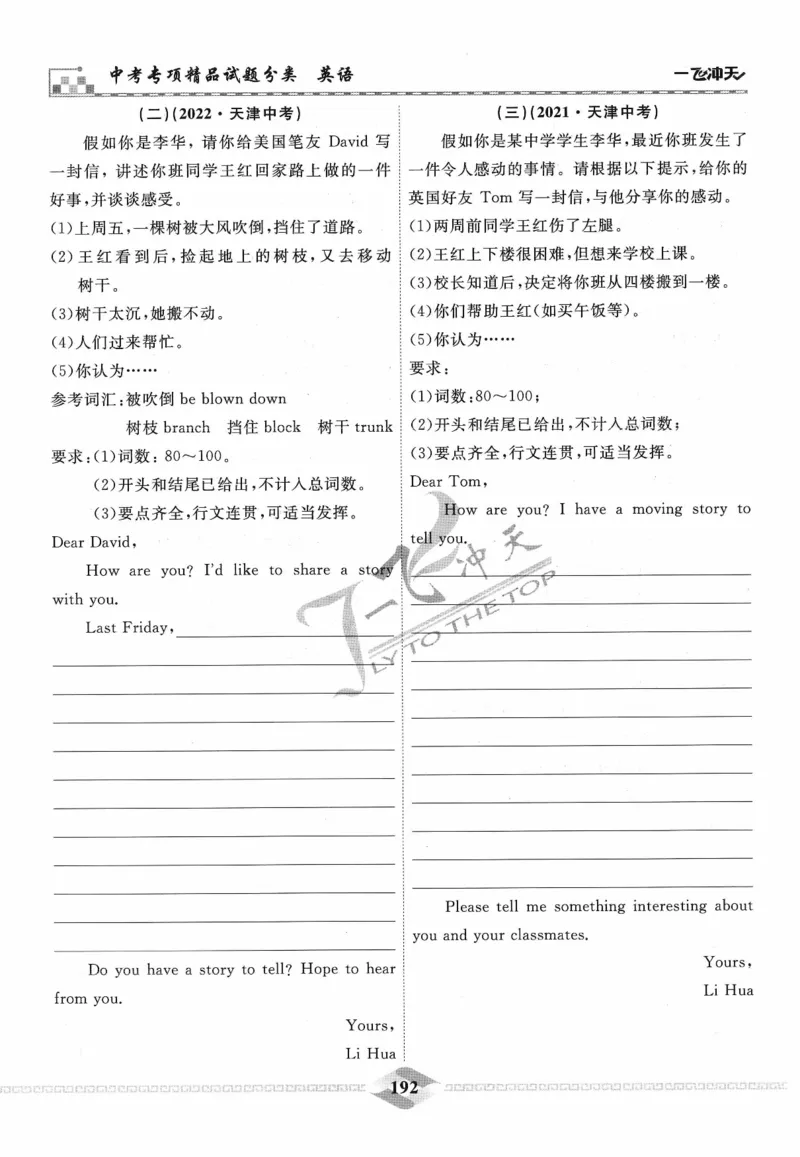 中考专项精品试题分类 英语
一飞冲天
(二)(2022·天津中考)
假如你是李华，请你给美国笔友 David 写
一封信，讲述你班同学王红回家路上做的一件
好事,并谈谈感受。
(1)上周五,一棵树被大风吹倒,挡住了道路。
(2)王红看到后,捡起地上的树枝,又去移动
树干。
(3)树干太沉,她搬不动。
(4)人们过来帮忙。
(5)你认为……
参考词汇:被吹倒 be blown down
树枝 branch 挡住 block 树干 trunk
要求:(1)词数: 80～100。
(2)开头和结尾已给出,不计入总词数。
(3)要点齐全,行文连贯,可适当发挥。
Dear David,
How are you? I'd like to share a story
with you.
Last Friday,
Do you have a story to tell? Hope to hear
from you.
Yours,
Li Hua
(三)(2021·天津中考)
假如你是某中学学生李华,最近你班发生了
一件令人感动的事情。请根据以下提示,给你的
英国好友 Tom 写一封信,与他分享你的感动。
(1)两周前同学王红伤了左腿。
(2)王红上下楼很困难,但想来学校上课。
(3)校长知道后,决定将你班从四楼搬到一楼。
(4)你们帮助王红(如买午饭等)。
(5)你认为……
要求:
(1)词数:80～100;
(2)开头和结尾已给出,不计入总词数;
(3)要点齐全,行文连贯,可适当发挥。
Dear Tom,
How are you? I have a moving story to
tell you.
一飞冲天
FLY TO THE TOP
Please tell me something interesting about
you and your classmates.
Yours,
Li Hua
192